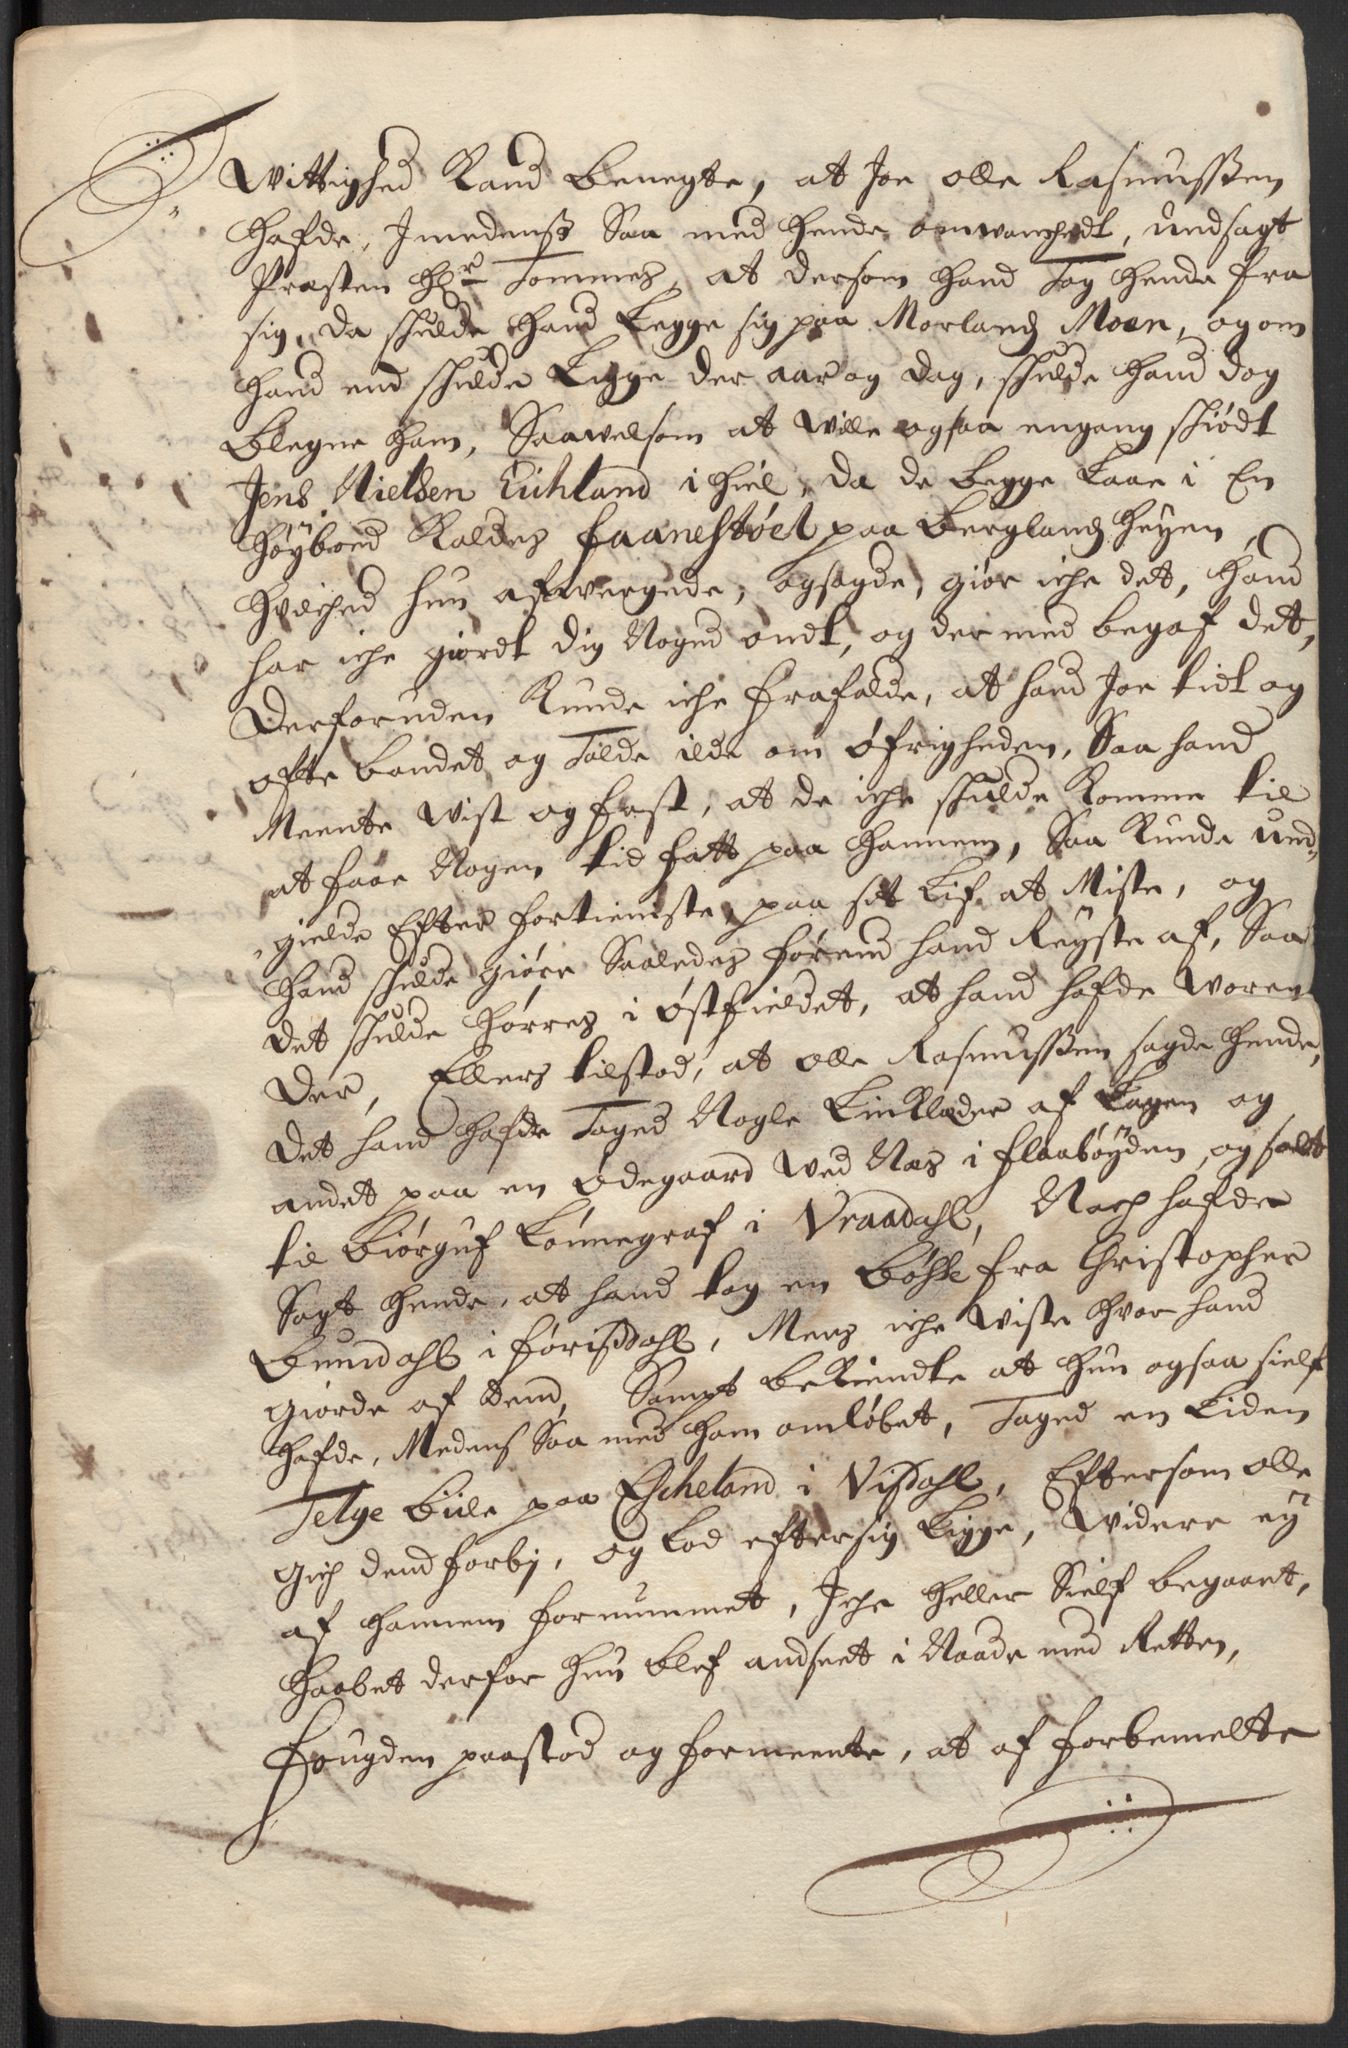 Wittighed Kand Benegte, at Joe olle Rasmussen
hafde, Imedenss Saa med hende omwanchedt, undsagt
Præsten Hr Tommes, at dersom hand Tog hende fra
sig, da skulde hand Legge sig paa Morlands Moen, og om
hand end skulde Ligge der aar og Dag, skulde hand dog
Blegne ham, Saawelsom at wille ogsaa engang skiødt
Jens Nielsen Euhland i hiel, da de begge Laae i En
høyboed Kaldes faanestøel paa Berglands heyen,
hvilched hun afvergede, og sagde, giør iche det, hand
har iche giordt dig Noged ondt, og der med begaf det,
Derforuden Kunde iche frafalde, at hand Joe tidt og
ofte bandet og Talde ilde om Øfrigheden, Saa hand
Meente Wist og fast, at de iche skulde Komme til
at faae Nogen tid fatt paa hannem, Saa Kunde und„
„gielde Efter fortieniste, paa sit Lif at Miste, og
hand skulde giøre Saaledes førend hand Reyste af, Saa
det skulde hørres i Østfieldet, at hand hafde Woren
der, Ellers tilstod, at olle Rasmussen sagde hende,
det hand hafde Taged Nogle Linklæder af Lagen og
andet paa en Ødegaard wed Næs i flaabøyden, og solt
til Biørguf Lønnegraf i Vraadahl, Noch hafde
Sagt hende, at hand tog en Bøsse fra Christopher
Bunndahl i førisdahl, Mens iche wiste hvor hand
giorde af dend, Sampt bekiendte at hun ogsaa sielf
hafde, Medens Saa med ham omløbet, Taged en Liden
Telge Biile paa Escheland i Visdahl, Eftersom olle
gich dend forbj, og Lod efter sig Ligge, Widere ey
af hannem fornummet, Iche heller Sielf begaaet,
haabet derfor hun blef andseet i Naade med Retten,
Fougden paastod og formeente, at af forbemelte